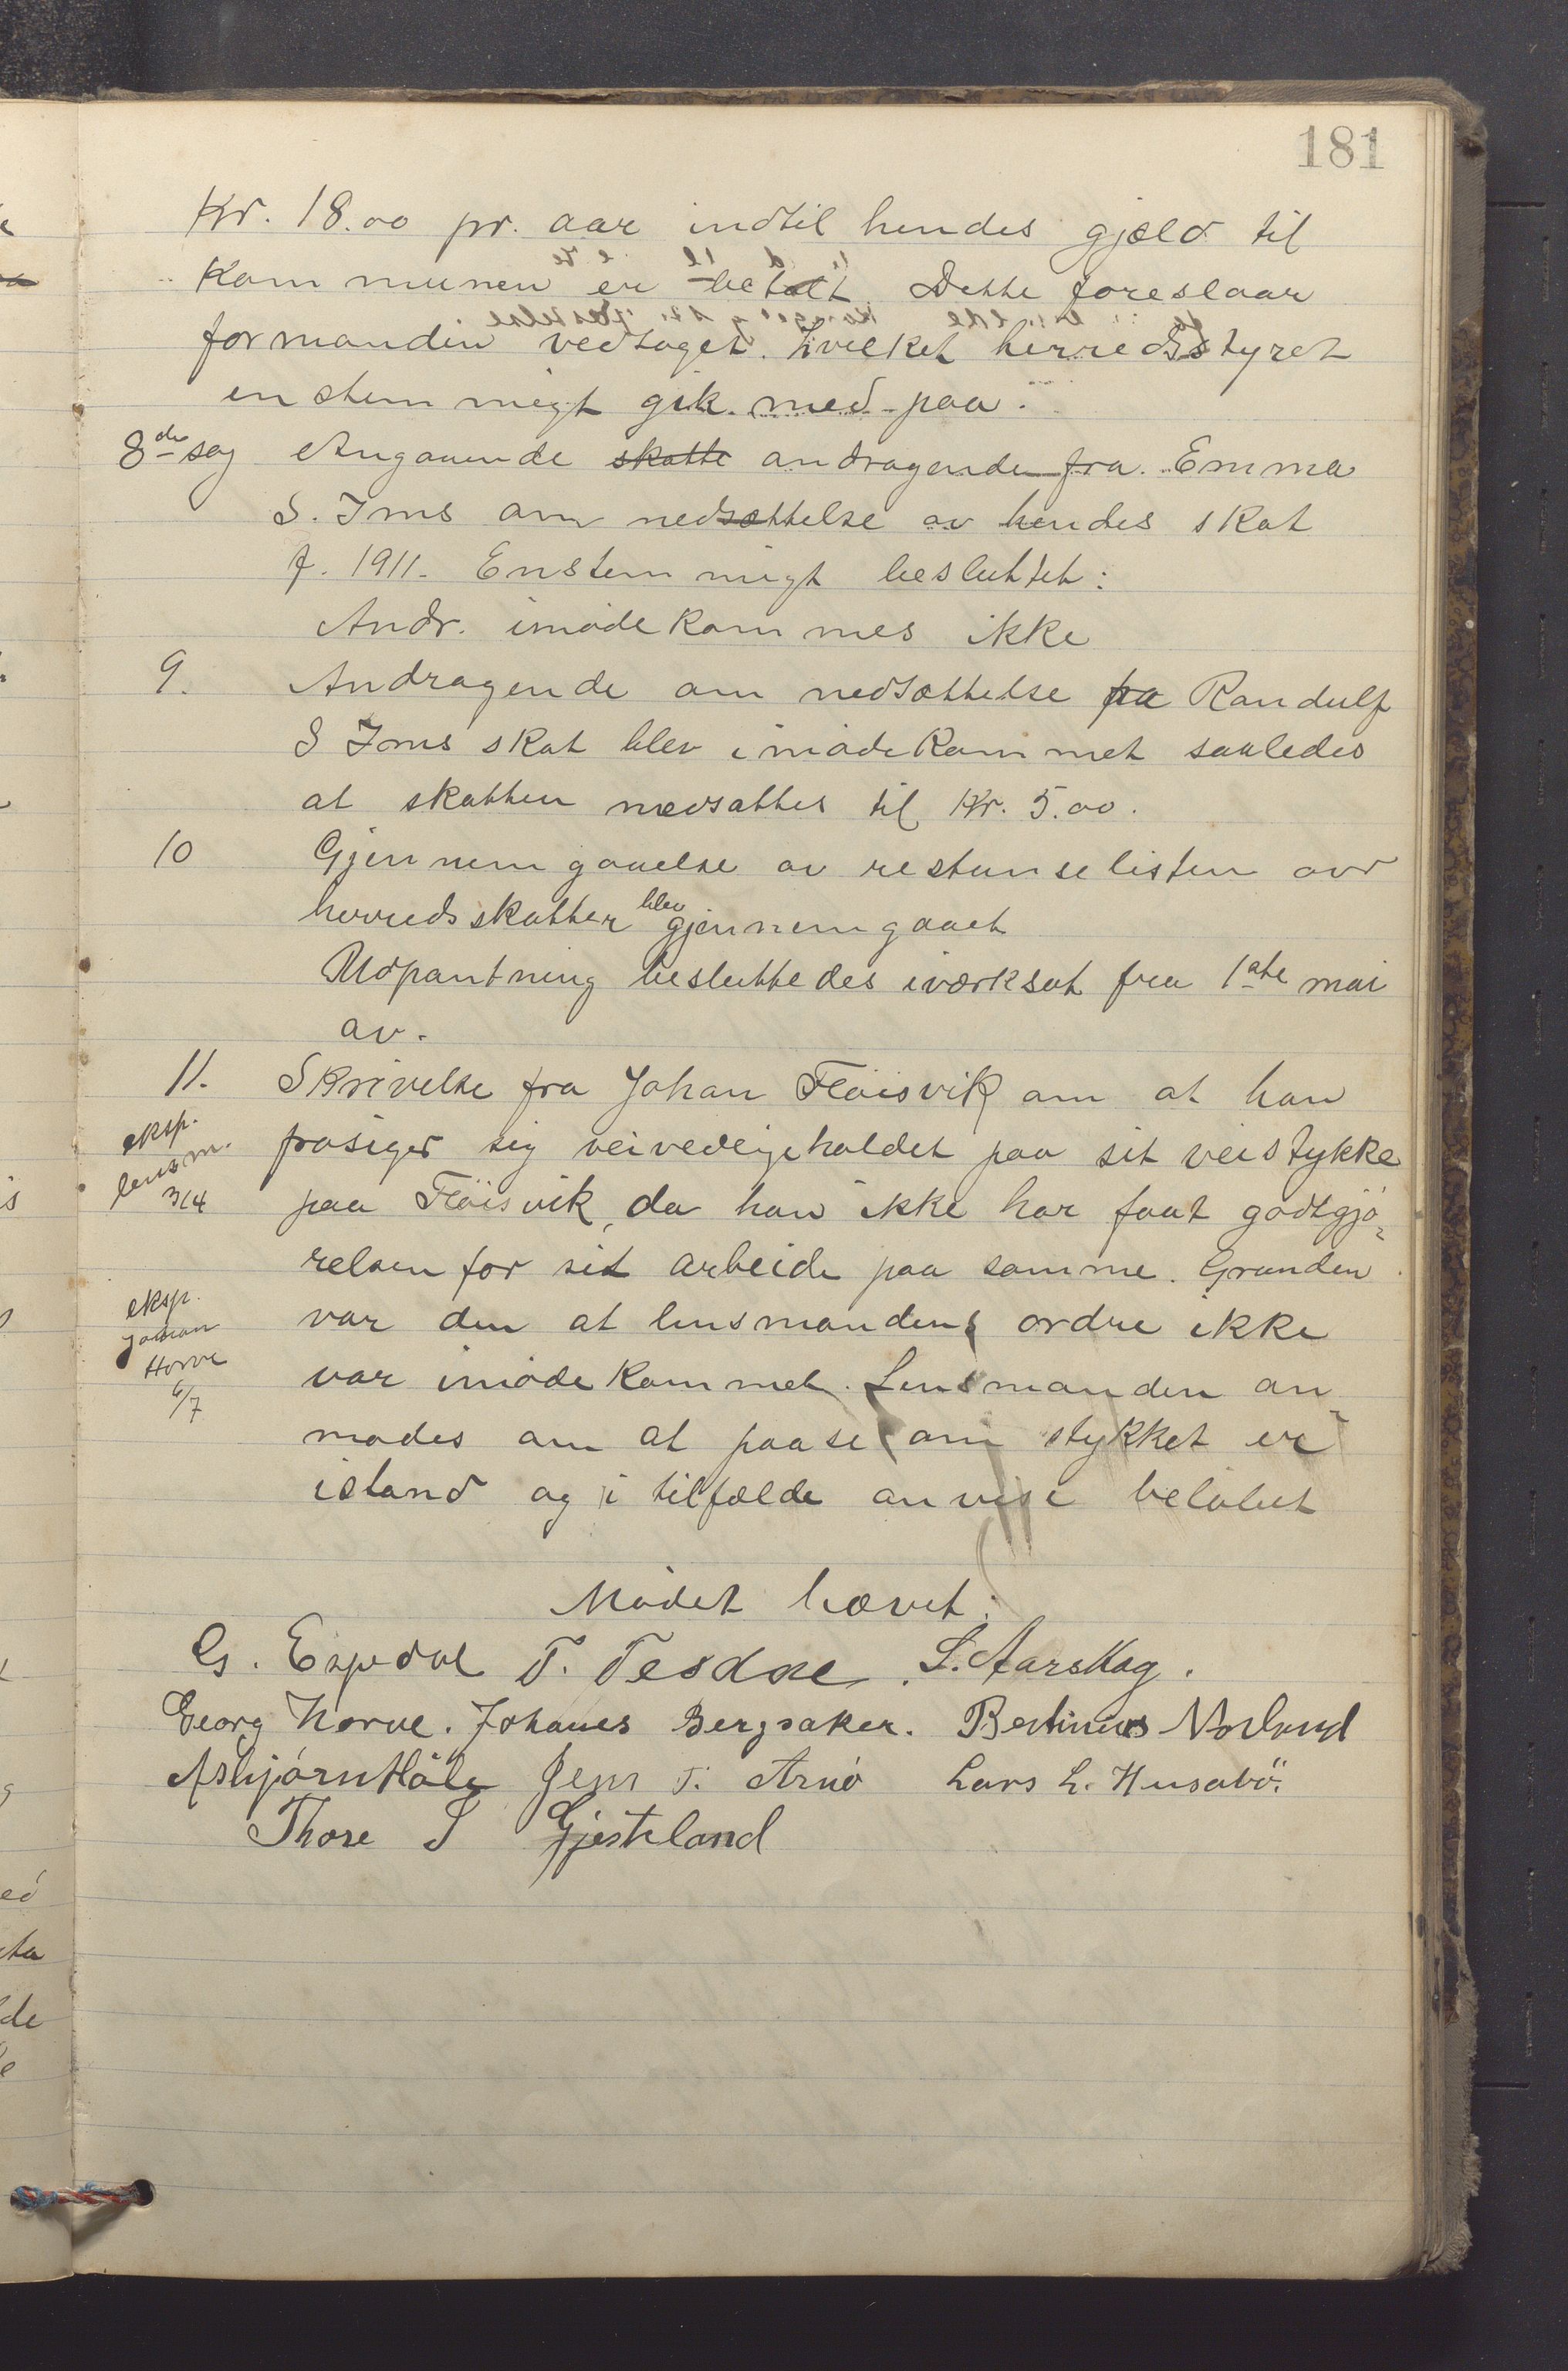 181
Kr. 18.00 pr. aar indtil hendes gjæld til
Kommunen er betalt. Dette foreslaar
formanden vedtaget. Hvilket herredsstyret
enstemmigt gik med paa.
8de sag Angaaende skatte andragende fra Emma
S. Ims om nedsættelse av hendes skat
f. 1911. Enstemmigt besluttet:
Andr. imødekommes ikke
9. Andragende om nedsættelse paa Randulf
S Ims skat blev imødekommet saaledes
at skatten nedsattes til Kr. 5.00.
10 Gjennemgaaelse av restanselisten over
herredsskatter blev gjennemgaaet
Udpantning besluttedes iværksat fra 1ste mai
av.
11. Skrivelse fra Johan Fløisvik om at han
eksp. lensm. 3/4
frasiger sig veivedligeholdet paa sit veistykke
paa Fløisvik, da han ikke har faat godtgjø-
relsen for sit arbeide paa samme. Grunden
eksp. Johan Horve 6/7
var den at lensmandens ordre ikke
var imødekommet. Lensmanden an-
modes om at paase om stykket er
istand og i tilfælde anvise beløbet
Mødet hævet.
G. Espedal T. Tesdal. S. Aarskog.
Georg Horve. Johanes Bergsaker. Bertinius Norland
Asbjørn Høle Jens T. Arnø Lars L. Husabø.
Thore S Gjesteland